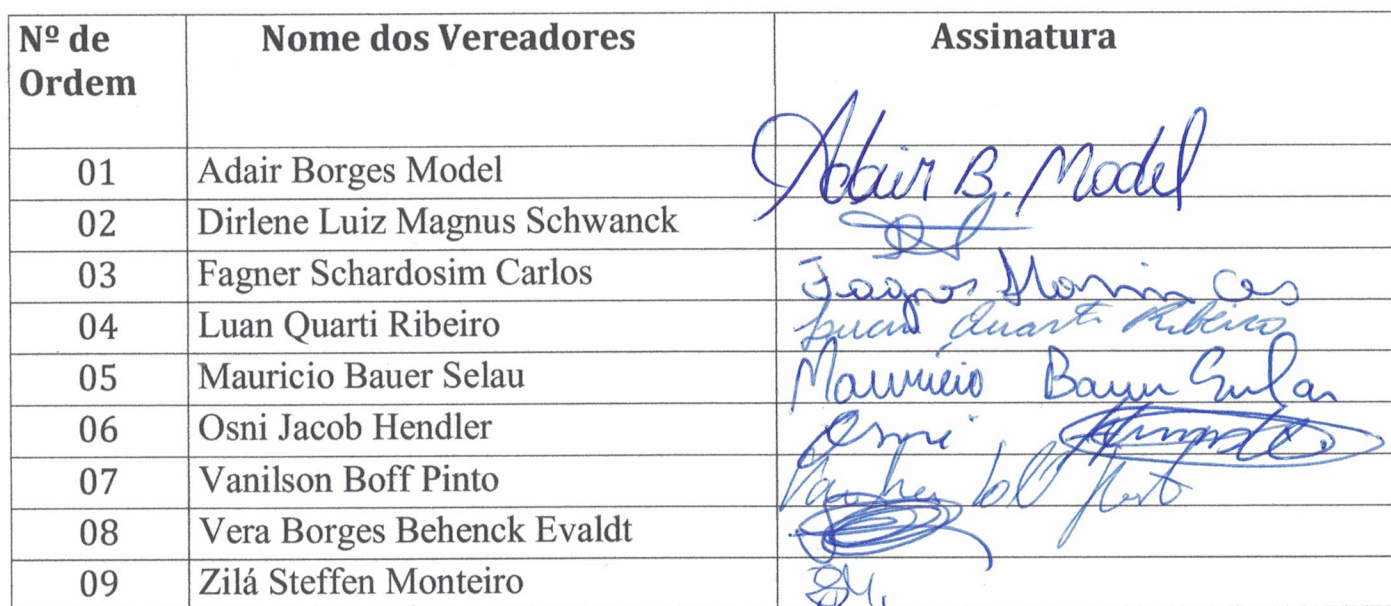 Nº de Ordem Nome dos Vereadores Assinatura
01 Adair Borges Model Adair B. Model
02 Dirlene Luiz Magnus Schwanck
03 Fagner Schardosim Carlos Fagner
04 Luan Quarti Ribeiro Luan Quarti Ribeiro
05 Mauricio Bauer Selau Mauricio Bauer Selau
06 Osni Jacob Hendler Osni
07 Vanilson Boff Pinto
08 Vera Borges Behenck Evaldt
09 Zilá Steffen Monteiro